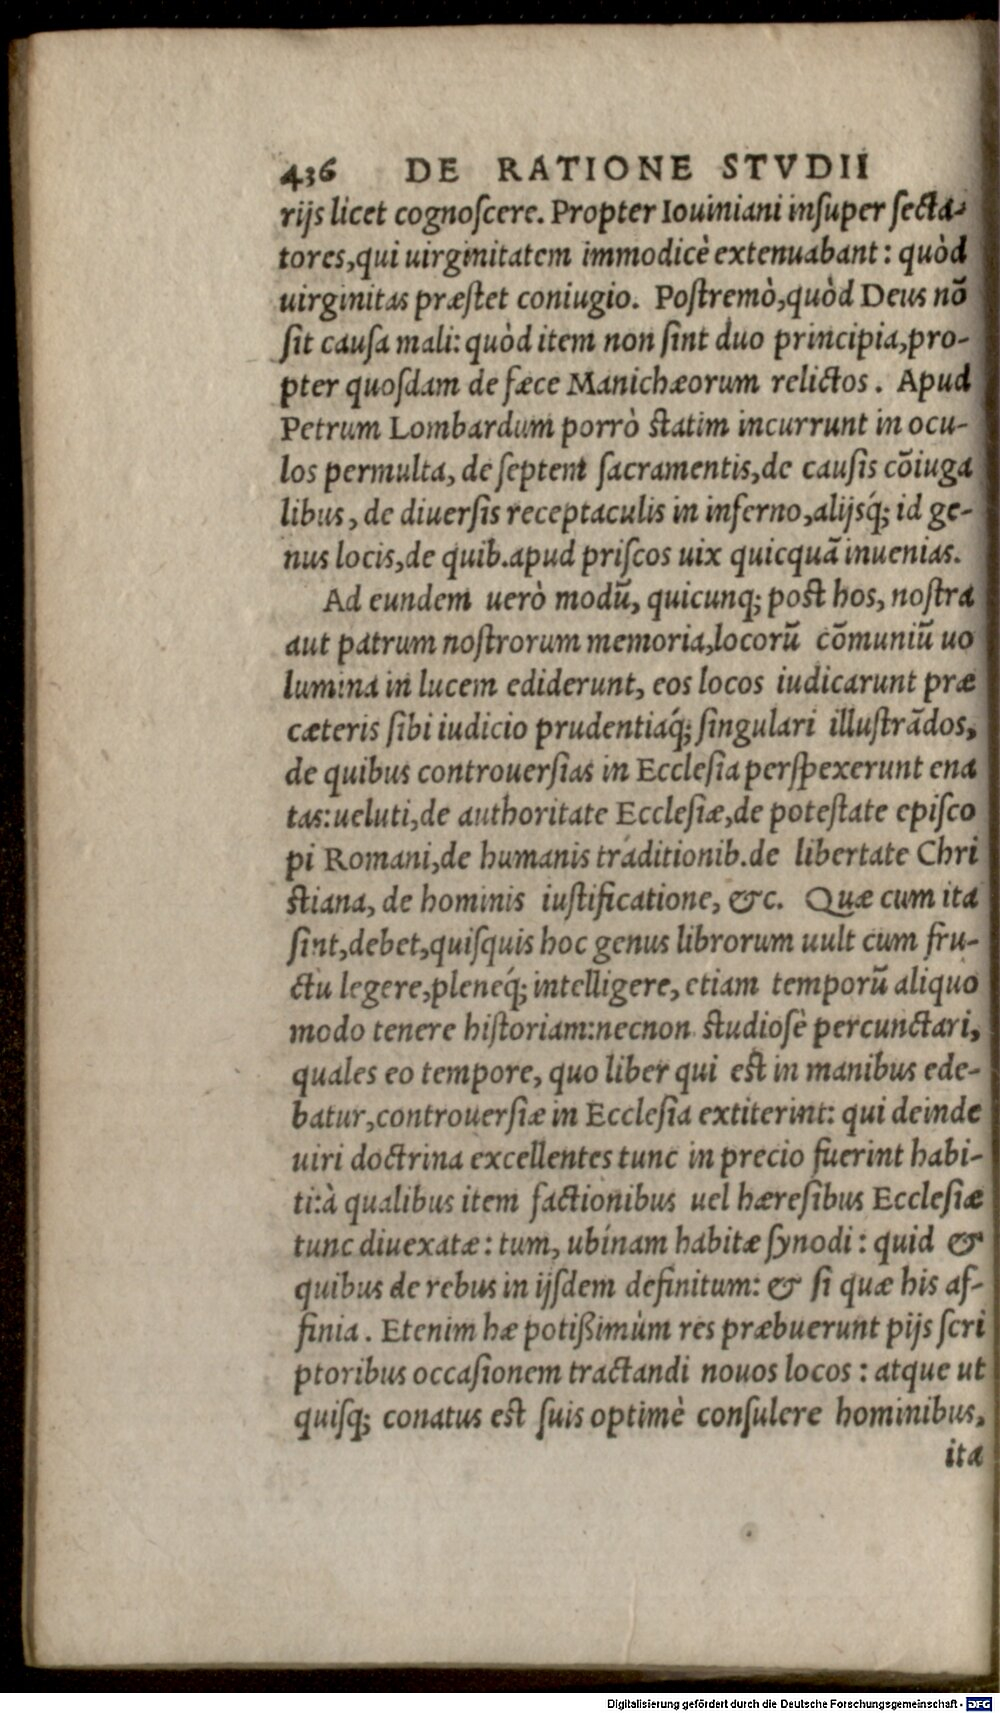 436 DE RATIONE STVDII
rijs licet cognoſcere. Propter Iouiniani inſuper ſecta-
tores,qui uirginitatem immodicè extenuabant: quòd
uirginitas præſtet coniugio. Poſtremò,quòd Deus nõ
ſit cauſa mali: quòd item non ſint duo principia,pro-
pter quoſdam de fæce Manichæorum relictos. Apud
Petrum Lombardum porrò ſtatim incurrunt in ocu-
los permulta, de ſeptem ſacramentis,de cauſis cõiuga
libus, de diuerſis receptaculis in inferno,alijsq́; id ge-
nus locis,de quib.apud priſcos uix quicquã inuenias.
Ad eundem uerò modũ, quicunq; poſt hos, noſtra
aut patrum noſtrorum memoria,locorũ cõmuniũ uo
lumina in lucem ediderunt, eos locos iudicarunt præ
cæteris ſibi iudicio prudentiaq́; ſingulari illuſtrãdos,
de quibus controuerſias in Eccleſia perſpexerunt ena
tas: ueluti,de authoritate Eccleſiæ,de poteſtate epiſco
pi Romani,de humanis traditionib.de libertate Chri
ſtiana, de hominis iuſtificatione, &c. Quæ cum ita
ſint,debet,quiſquis hoc genus librorum uult cum fru-
ctu legere,pleneq́; intelligere, etiam temporũ aliquo
modo tenere hiſtoriam:necnon ſtudioſè percunctari,
quales eo tempore, quo liber qui eſt in manibus ede-
batur,controuerſiæ in Eccleſia extiterint: qui deinde
uiri doctrina excellentes tunc in precio fuerint habi-
ti:à qualibus item factionibus uel hæreſibus Eccleſiæ
tunc diuexatæ: tum, ubínam habitæ ſynodi: quid &
quibus de rebus in ijſdem definitum: & ſi quæ his aſ-
finia. Etenim hæ potißimùm res præbuerunt pijs ſcri
ptoribus occaſionem tractandi nouos locos: atque ut
quiſq; conatus eſt ſuis optimè conſulere hominibus,
ita
Digitalisierung gefördert durch die Deutsche Forschungsgemeinschaft - DFG